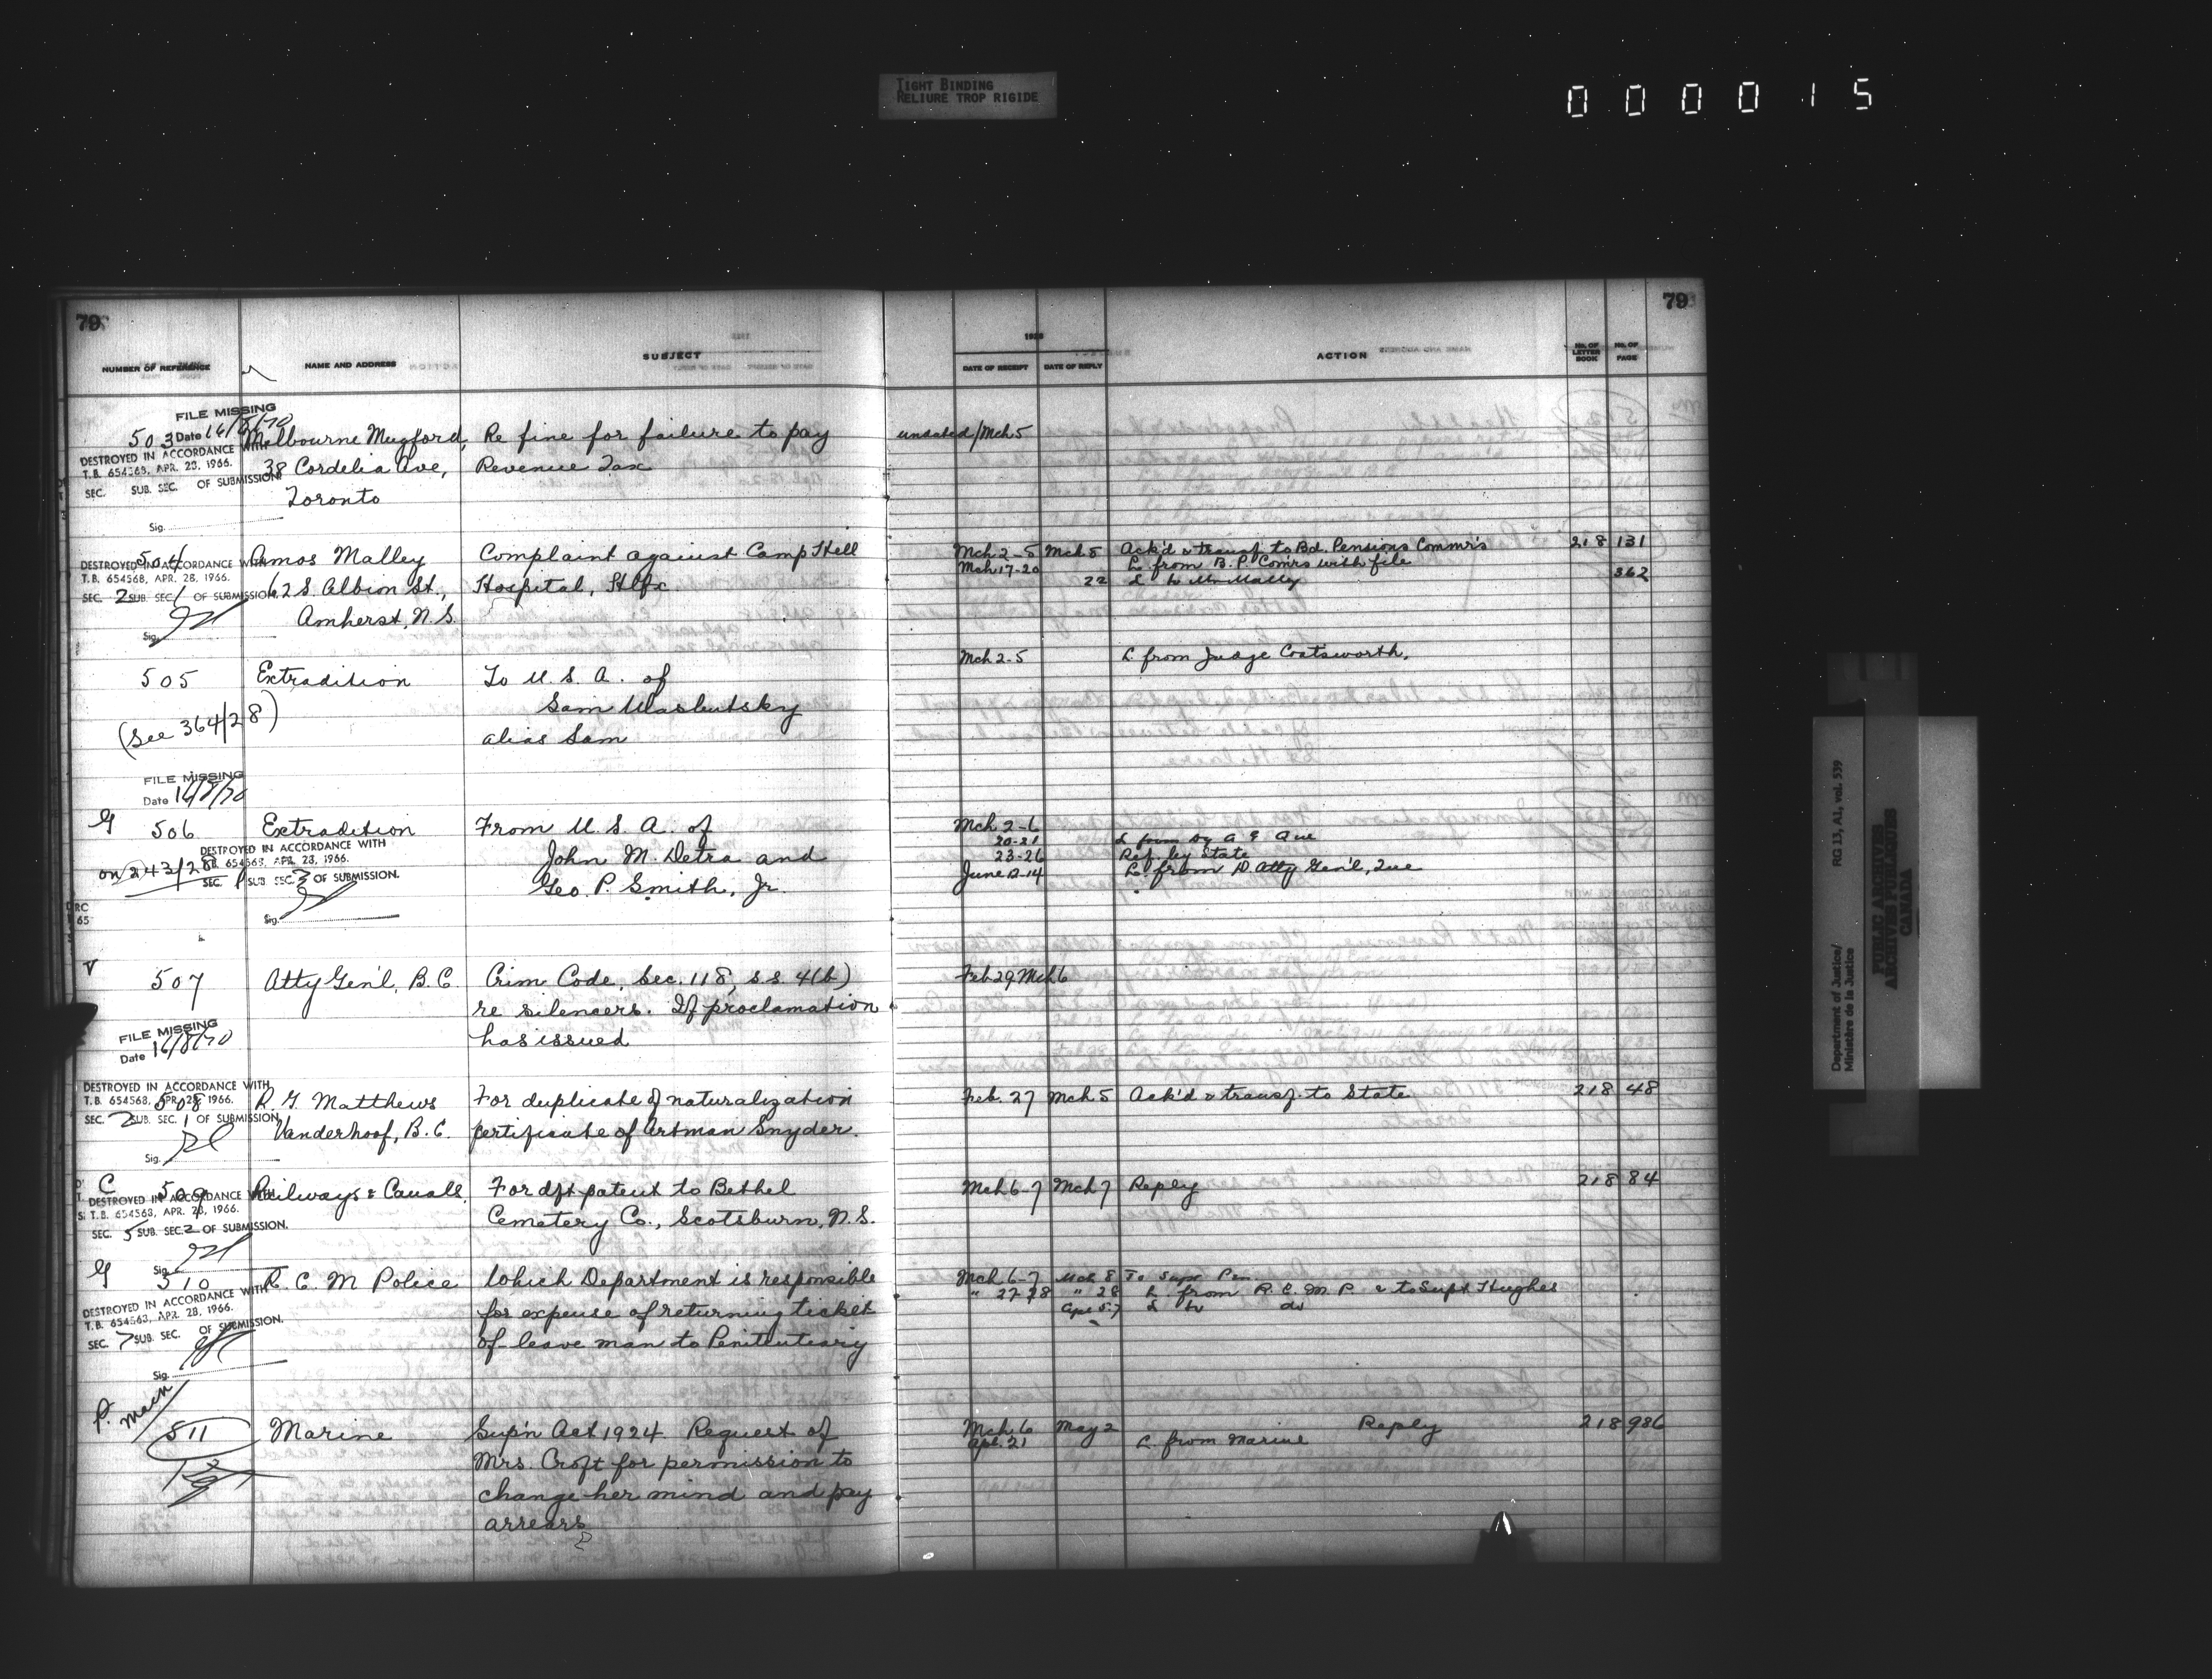 TIGHT BINDING
RELIURE TROP RIGIDE
000015
79
NUMBER OF REFERENCE NAME AND ADDRESS SUBJECT
FILE MISSING
503 Date 16/8/70 Melbourne Mugford, Re fine for failure to pay
DESTROYED IN ACCORDANCE WITH
T.B. 654568, APR. 28, 1966. 38 Cordelia Ave, Revenue Tax
SEC. SUB. SEC. OF SUBMISSION.
Toronto
Sig.
504 Amos Malley Complaint against Camp Hill
DESTROYED IN ACCORDANCE WITH
T.B. 654568, APR. 28, 1966.
SEC. 2 SUB. SEC. 1 OF SUBMISSION. 62 S. Albion St., Hospital, Hlfx.
Amherst, N.S.
Sig.
505 Extradition To U.S.A. of
(See 364/28) Sam Wasbutsky
alias Sam
FILE MISSING
Date 16/8/70
G 506 Extradition From U.S.A. of
DESTROYED IN ACCORDANCE WITH
on 243/28 T.B. 654568, APR. 28, 1966. John M. Detra and
SEC. 1 SUB. SEC. 3 OF SUBMISSION. Geo. P. Smith, Jr.
Sig.
V 507 Atty Gen'l, B.C. Crim Code, Sec. 118, s.s. 4(b)
re silencers. If proclamation
FILE MISSING has issued
Date 16/8/70
DESTROYED IN ACCORDANCE WITH
T.B. 654568, APR. 28, 1966.
508 R. G. Matthews For duplicate of naturalization
SEC. 2 SUB. SEC. 1 OF SUBMISSION.
Vanderhoof, B.C. certificate of Artman Snyder.
Sig.
C 509 Railways & Canals, For dft patent to Bethel
DESTROYED IN ACCORDANCE WITH
T.B. 654568, APR. 28, 1966. Cemetery Co., Scotsburn, N.S.
SEC. 5 SUB. SEC. 2 OF SUBMISSION.
Sig.
G 510 R. C. M Police Which Department is responsible
DESTROYED IN ACCORDANCE WITH
T.B. 654568, APR. 28, 1966. for expense of returning ticket
SEC. 7 SUB. SEC. OF SUBMISSION. of-leave man to Penitentiary
Sig.
P. Mach
511 Marine Sup'n Act 1924. Request of
Mrs. Croft for permission to
change her mind and pay
arrears
79
DATE OF RECEIPT DATE OF REPLY ACTION No. OF LETTER BOOK No. OF PAGE
undated/Mch 5
Mch 2-5 Mch 5 Ack'd & transf. to Bd. Pensions Commr's 218 131
Mch 17-20 L from B. P. Com'rs with file
22 L to Mr Mally 362
Mch 2-5 L from Judge Coatsworth.
Mch 2-6
20-21 L from
23-26 Ref. by State
June 12-14 L from D. Atty Gen'l, Que
Feb 29 Mch 6
Feb. 27 Mch 5 Ack'd & transf. to State 218 48
Mch 6-7 Mch 7 Reply 218 84
Mch 6-7 Mch 8 To Supt Pen.
" 27-28 " 28 L from R. C. M. P. & to Supt Hughes
Apl 5-7 L to do
Mch 6 May 2 Reply 218 986
Apl. 21 L from Marine
Department of Justice/
Ministère de la Justice
RG 13, A1, vol. 539
PUBLIC ARCHIVES
ARCHIVES PUBLIQUES
CANADA